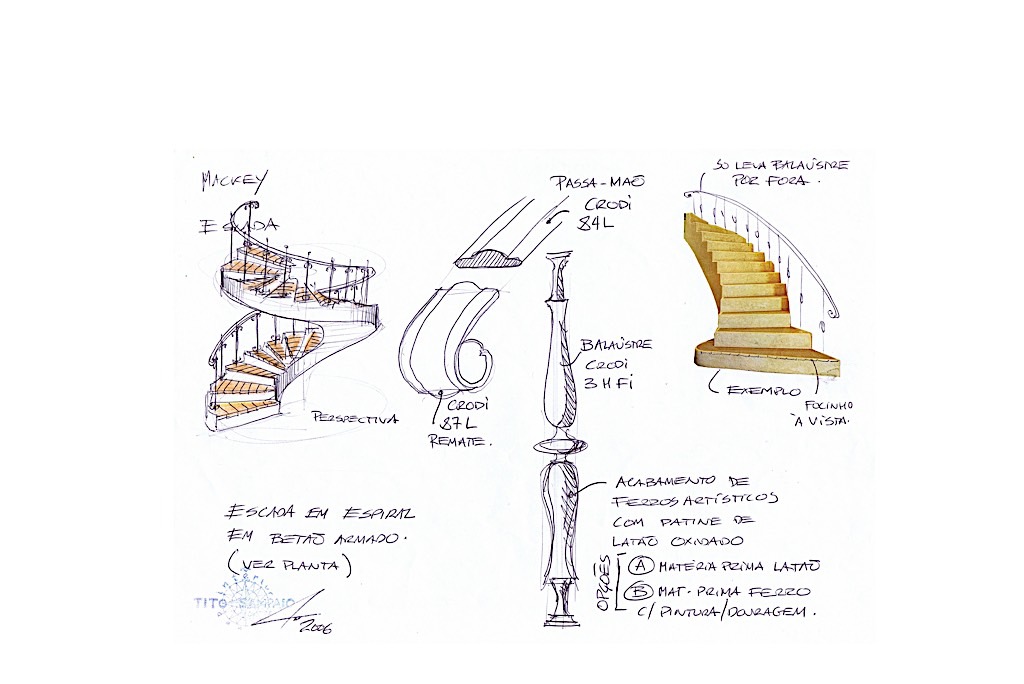 MACKEY
ESCADA
PERSPECTIVA
PASSA-MAÕ
CRODI
84L
CRODI
87L
REMATE.
BALAÚSTRE
CRODI
3 H Fi
SO LEVA BALAÚSTRE
POR FORA.
EXEMPLO
FOCINHO
À VISTA.
ESCADA EM ESPIRAL
EM BETAÕ ARMADO.
(VER PLANTA)
TITO SAMPAIO
2006
ACABAMENTO DE
FERROS ARTÍSTICOS
COM PATINE DE
LATÃO OXIDADO
OPÇÕES
A MATÉRIA PRIMA LATAÕ
B MAT. PRIMA FERRO
C/ PINTURA/DOURAGEM.